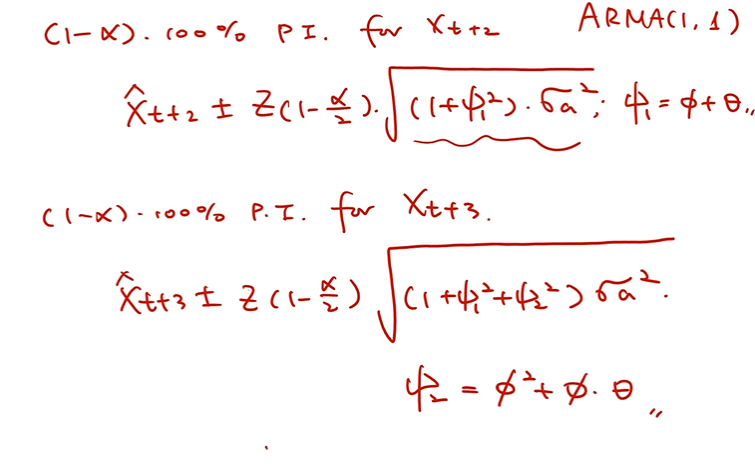 (1-α).100% P.I. for Xt+2 ARMA(1,1)
X̂t+2 ± Z(1-α/2).√(1+ψ₁²).σa²; ψ₁ = ϕ+θ,,
(1-α).100% P.I. for Xt+3.
X̂t+3 ± Z(1-α/2) √(1+ψ₁²+ψ₂²)σa².
ψ₂ = ϕ²+ϕ.θ,,